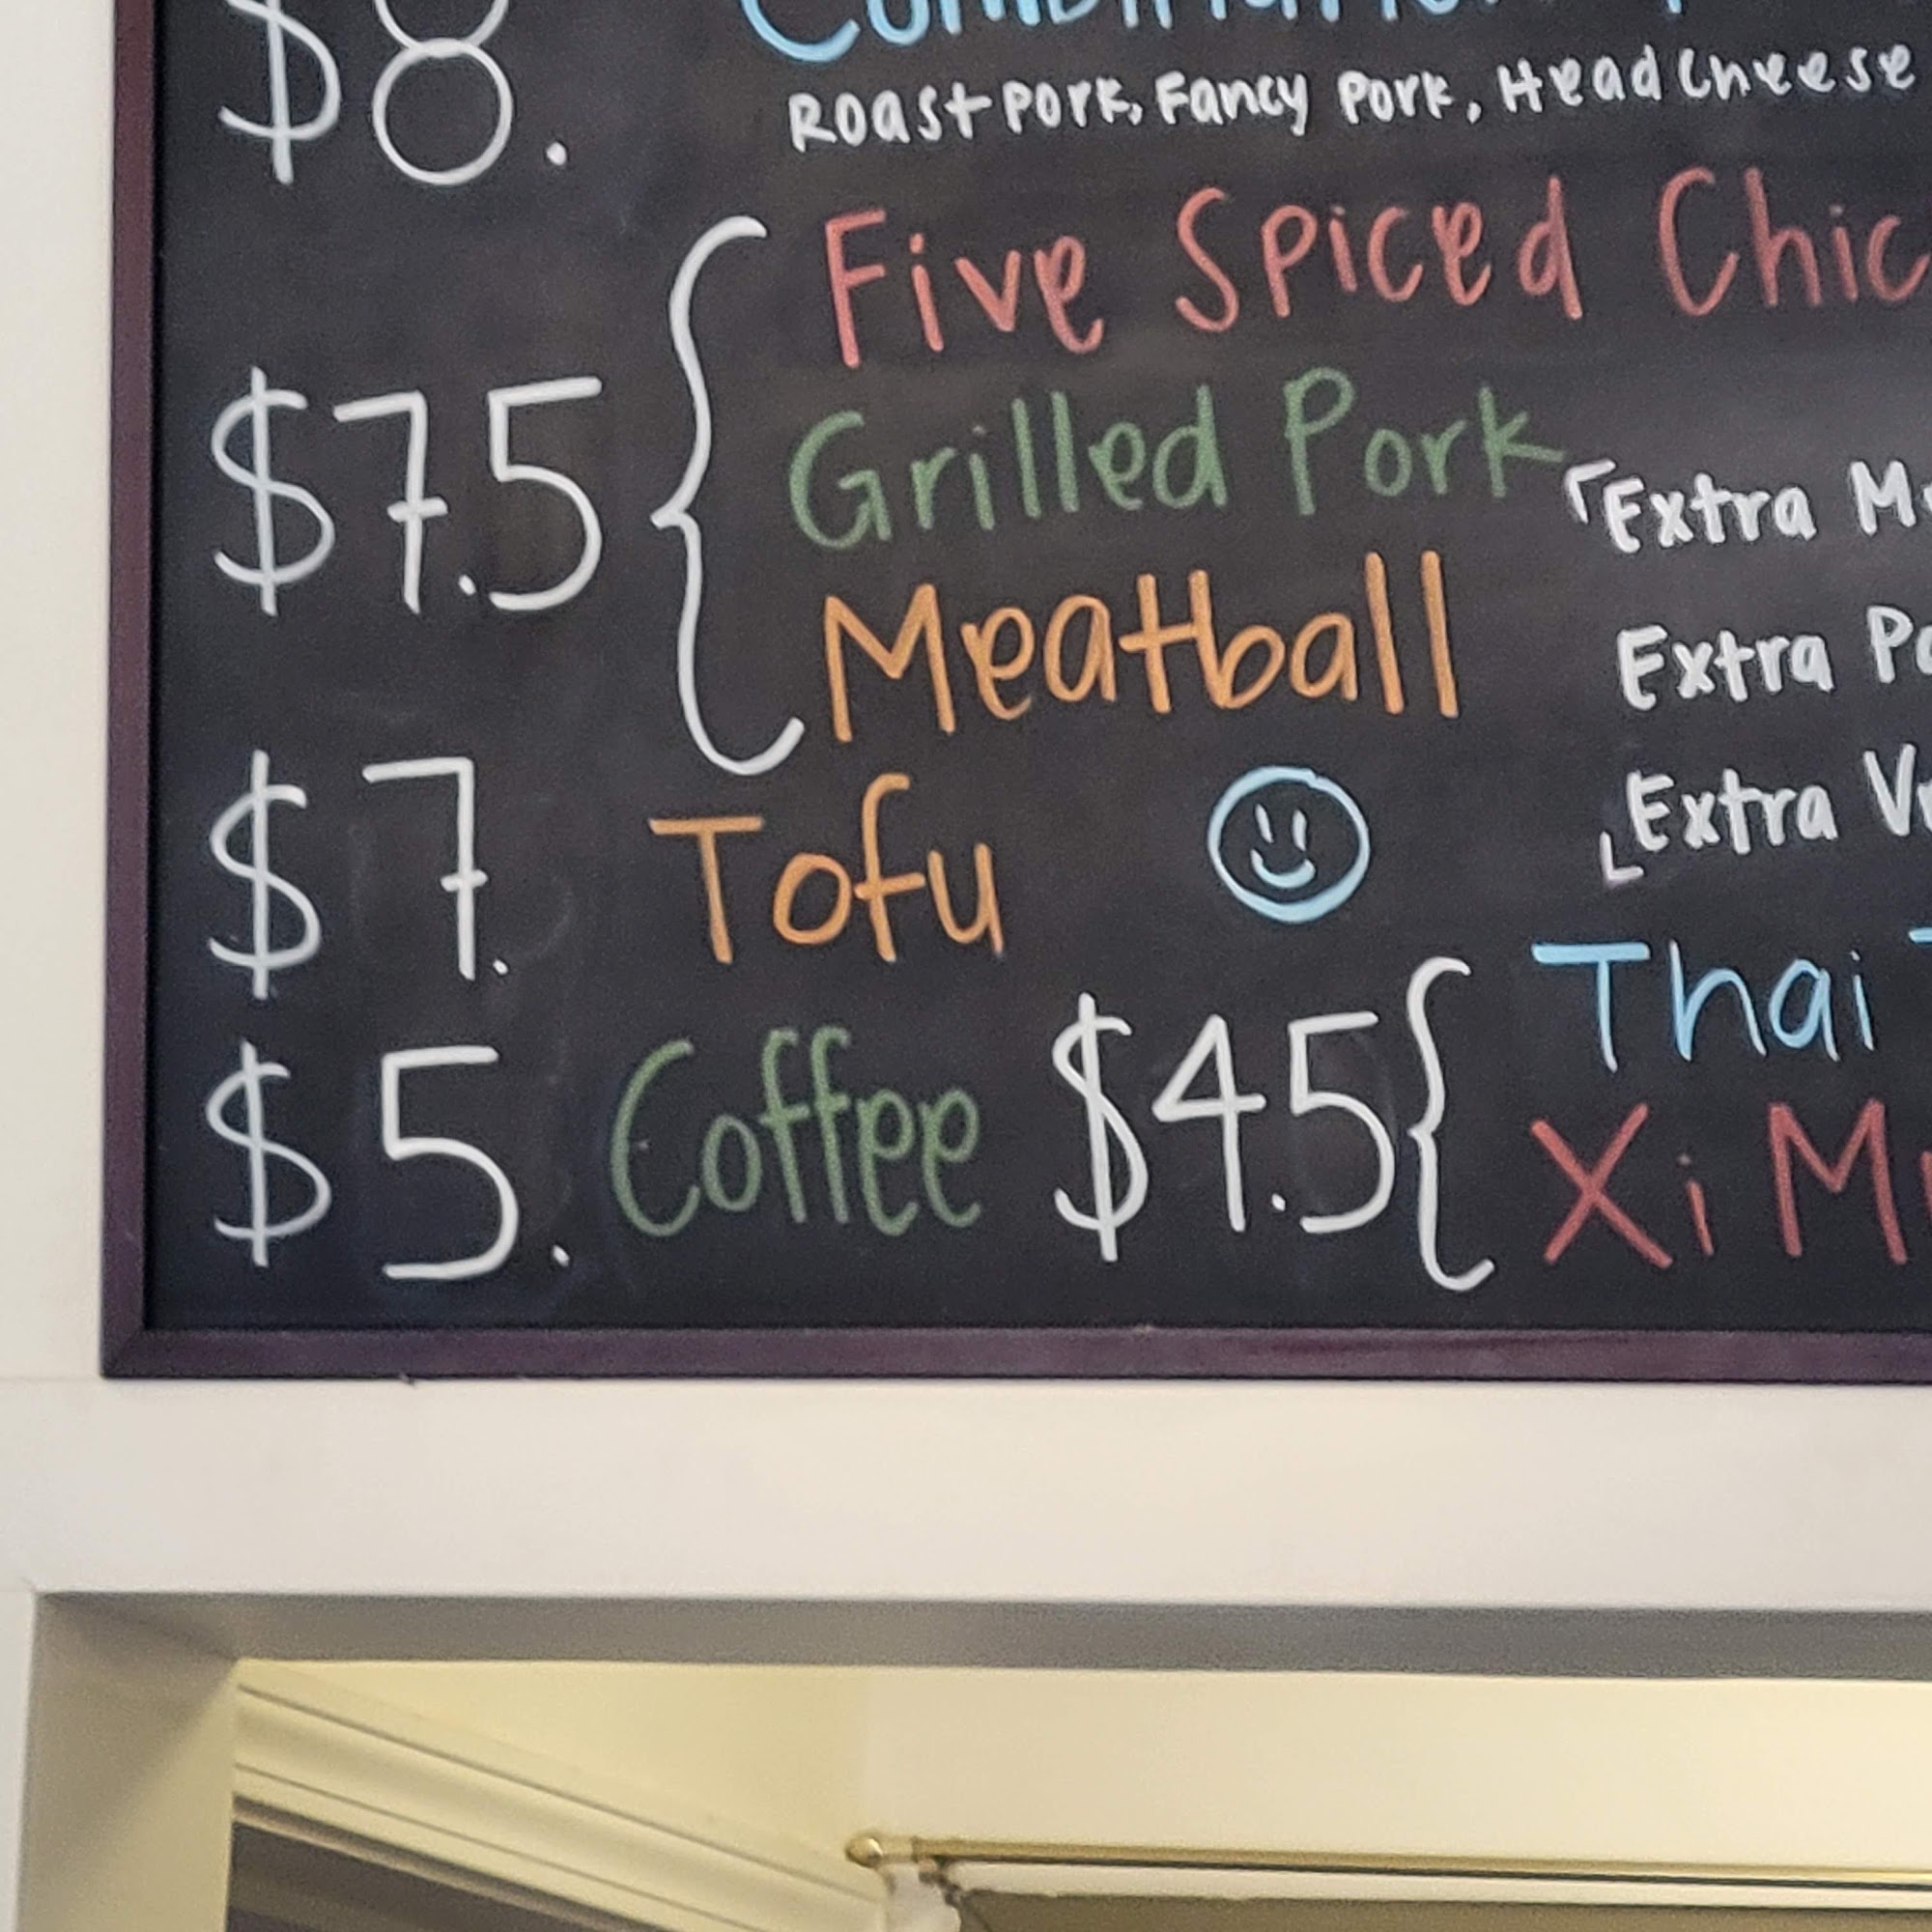 $8. Combination
Roast Pork, Fancy Pork, Head Cheese
Five Spiced Chic
$7.5 Grilled Pork
Meatball
Extra
Extra
Extra
$7. Tofu
$5. Coffee $4.5
Thai
Xi